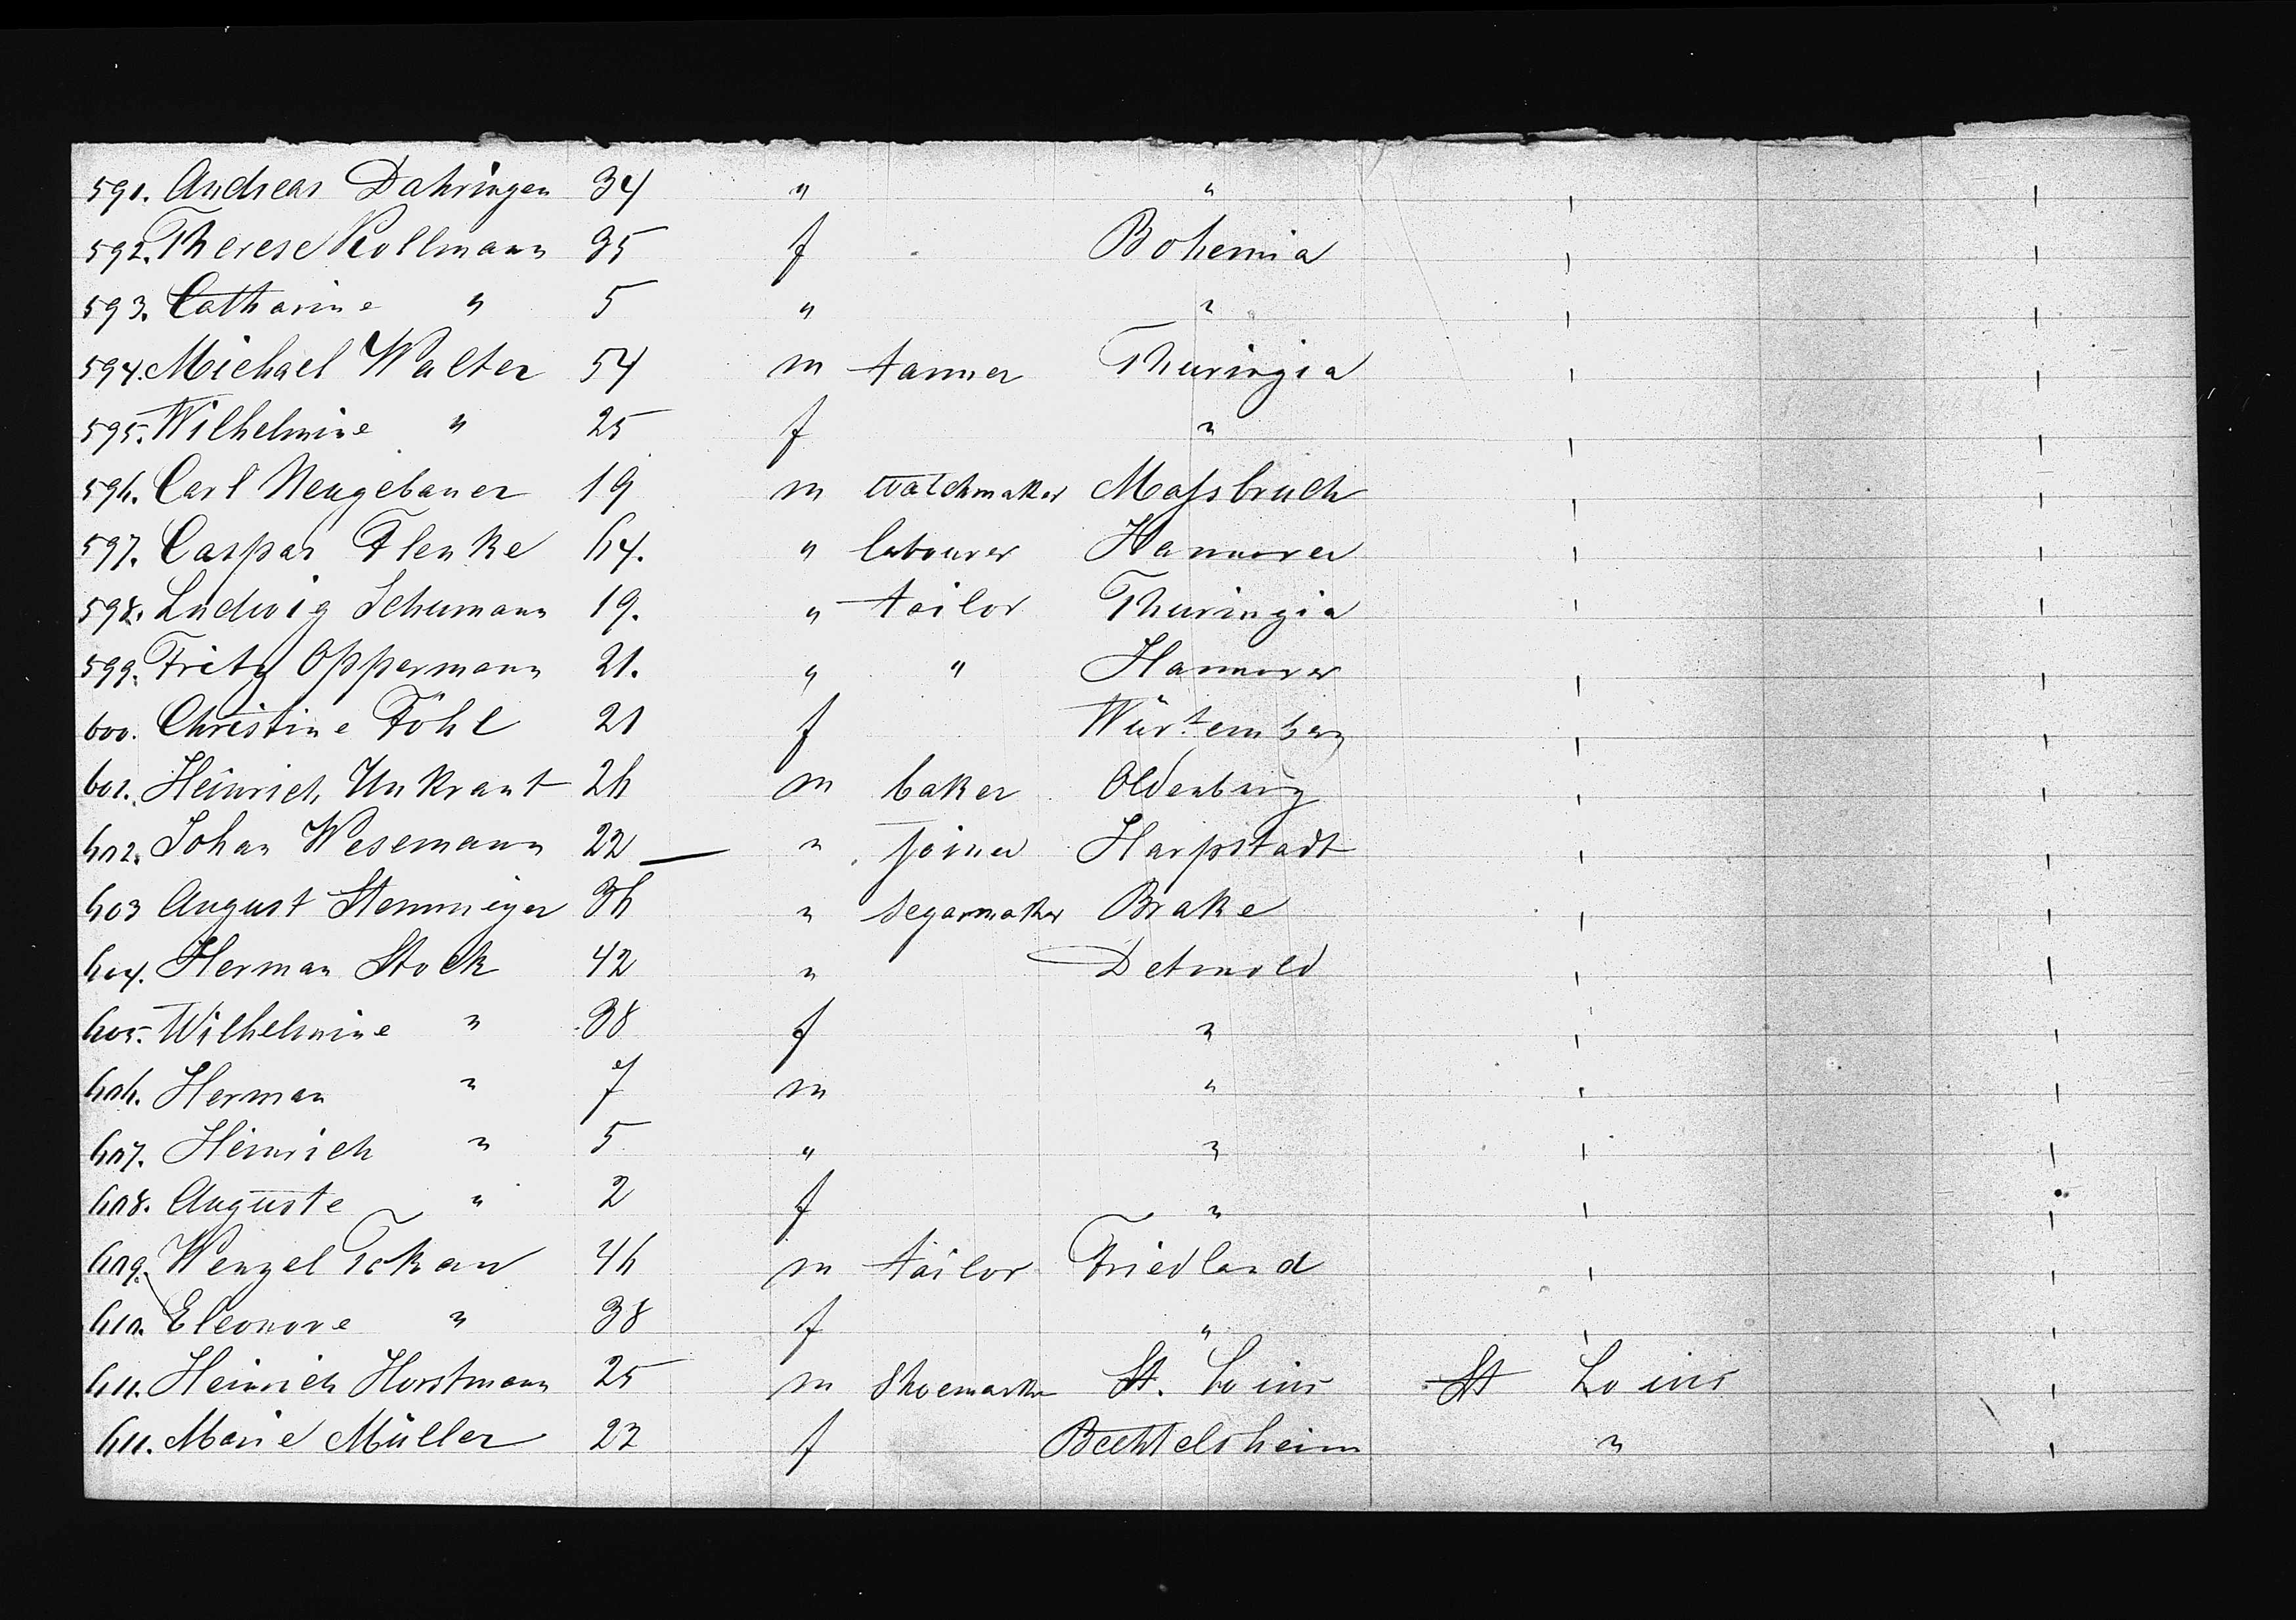 591. Andreas Dahringen 34 " "
592. Therese Kollmann 35 f Bohemia
593. Catharine " 5 " "
594. Michael Walter 54 m tanner Thuringia
595. Wilhelmine " 25 f "
596. Carl Neugebauer 19 m watchmaker Massbruch
597. Caspar Flenke 64. " labourer Hannover
598. Ludwig Schumann 19. " tailor Thuringia
599. Fritz Oppermann 21. " " Hannover
600. Christine Föhl 21 f Würtemberg
601. Heinrich Unkraut 26 m baker Oldenburg
602. Johan Wesemann 22 " joiner Harpstadt
603 August Stemmeyer 36 " segarmaker Brake
604. Herman Stock 42 " Detmold
605. Wilhelmine " 38 f "
606. Herman " 7 m "
607. Heinrich " 5 " "
608. Auguste " 2 f "
609. Wenzel Tokan 46 m tailor Friedland
610. Eleonore " 38 f "
611. Heinrich Horstmann 25 m Shoemaker St. Louis St Louis
611. Marie Müller 22 f Bechtelsheim "